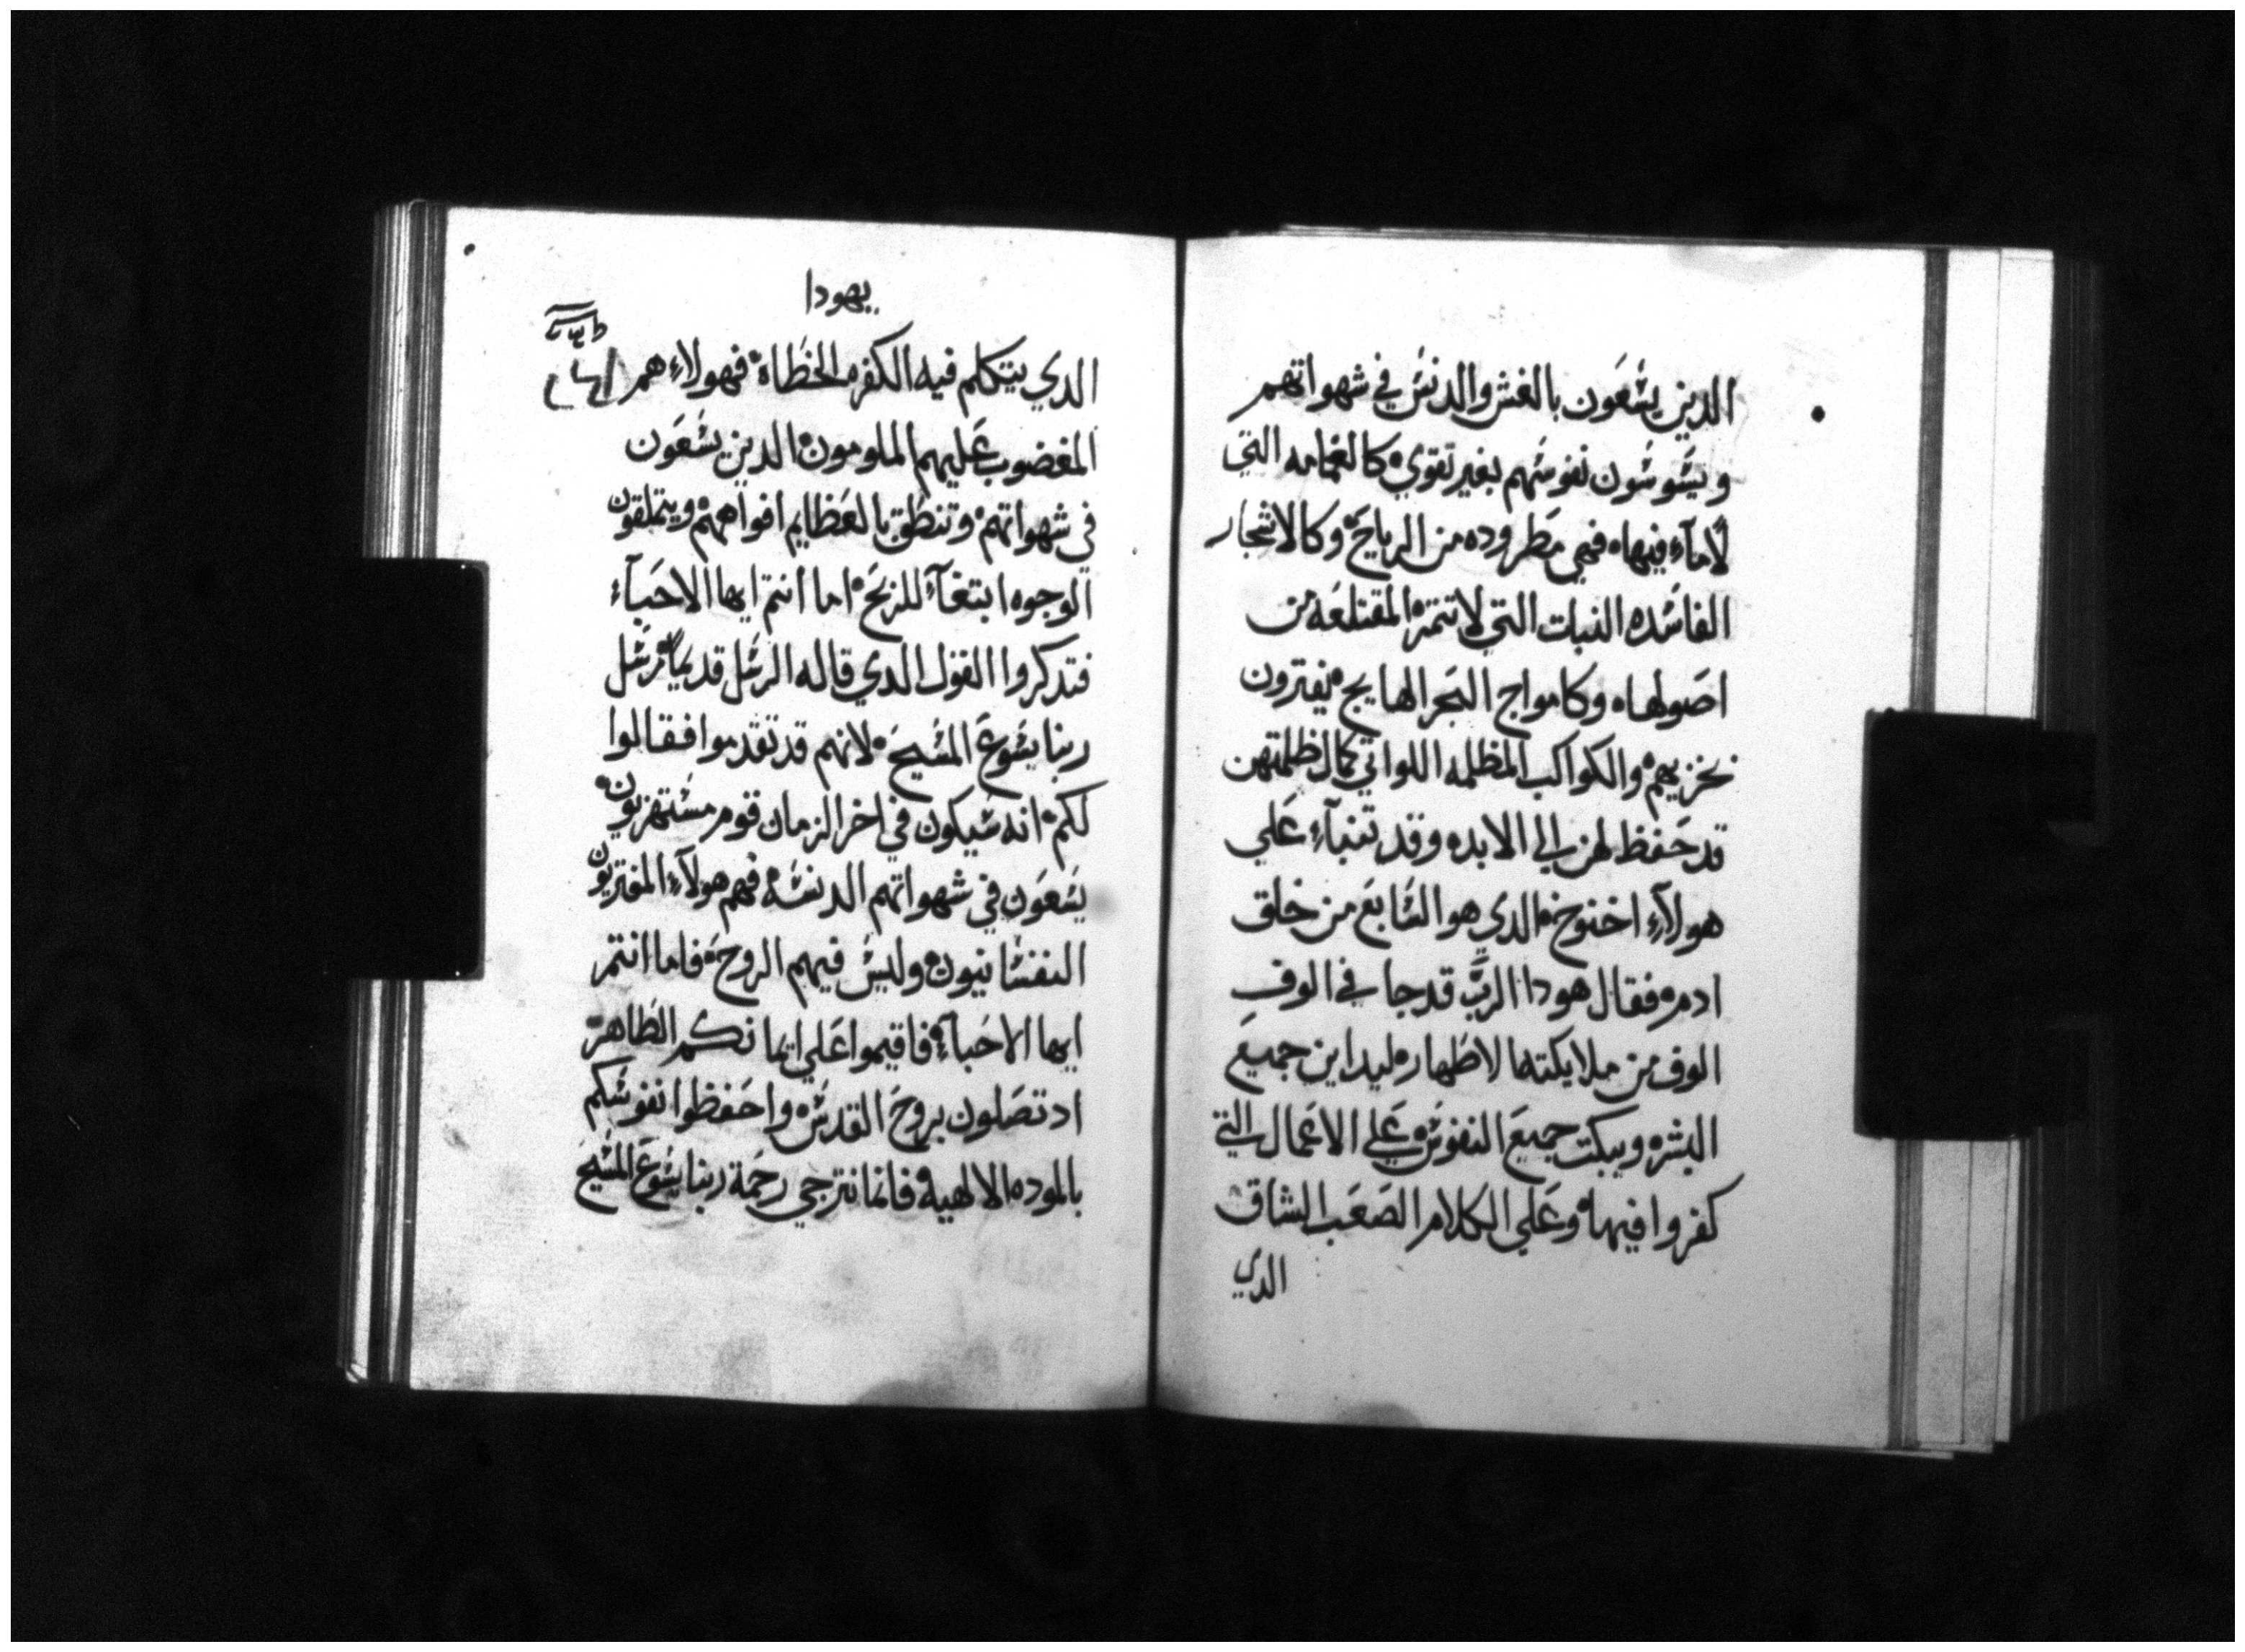 الدين يسعون بالغش والدنس في شهواتهم
ويشوشون نفوسهم بغير تقوي كالغمامه التي
لاماء فيها فهي مطروده من الرياح وكالاشجار
الفاسده النبات التي لاتتمر المقتلعه من
اصولها وكامواج البحر الهايج يفترون
بخزيهم والكواكب المظلمه اللواتي كمال ظلمتهن
قد حفظ لهن الي الابد وقد تنباء علي
هولاء اخنوخ الدي هو السابع من خلق
ادم فقال هودا الرب قد جا في الوف
الوف من ملايكته الاطهار ليداين جميع
البشر ويبكت جميع النفوس علي الاعمال التي
كفروا فيها وعلي الكلام الصعب الشاق
الدي
يهودا
الدي يتكلم فيه الكفره الخطاه فهولاء هم
المغضوب عليهم الملومون الدين يسعون
في شهواتهم وتنطق بالعظايم افواههم ويتملقون
الوجوه ابتغاء للربح اما انتم ايها الاحباء
فتدكروا القول الدي قاله الرسل قديما رسل
ربنا يسوع المسيح لانهم قد تقدموا فقالوا
لكم انه سيكون في اخر الزمان قوم مستهزيون
يسعون في شهواتهم الدنسه فهم هولاء المفتريون
النفسانيون وليس فيهم الروح فاما انتم
ايها الاحباء فاقيموا علي ايمانكم الطاهر
اد تصلون بروح القدس واحفظوا نفوسكم
بالموده الالهيه فانما نترجي رحمة ربنا يسوع المسيح